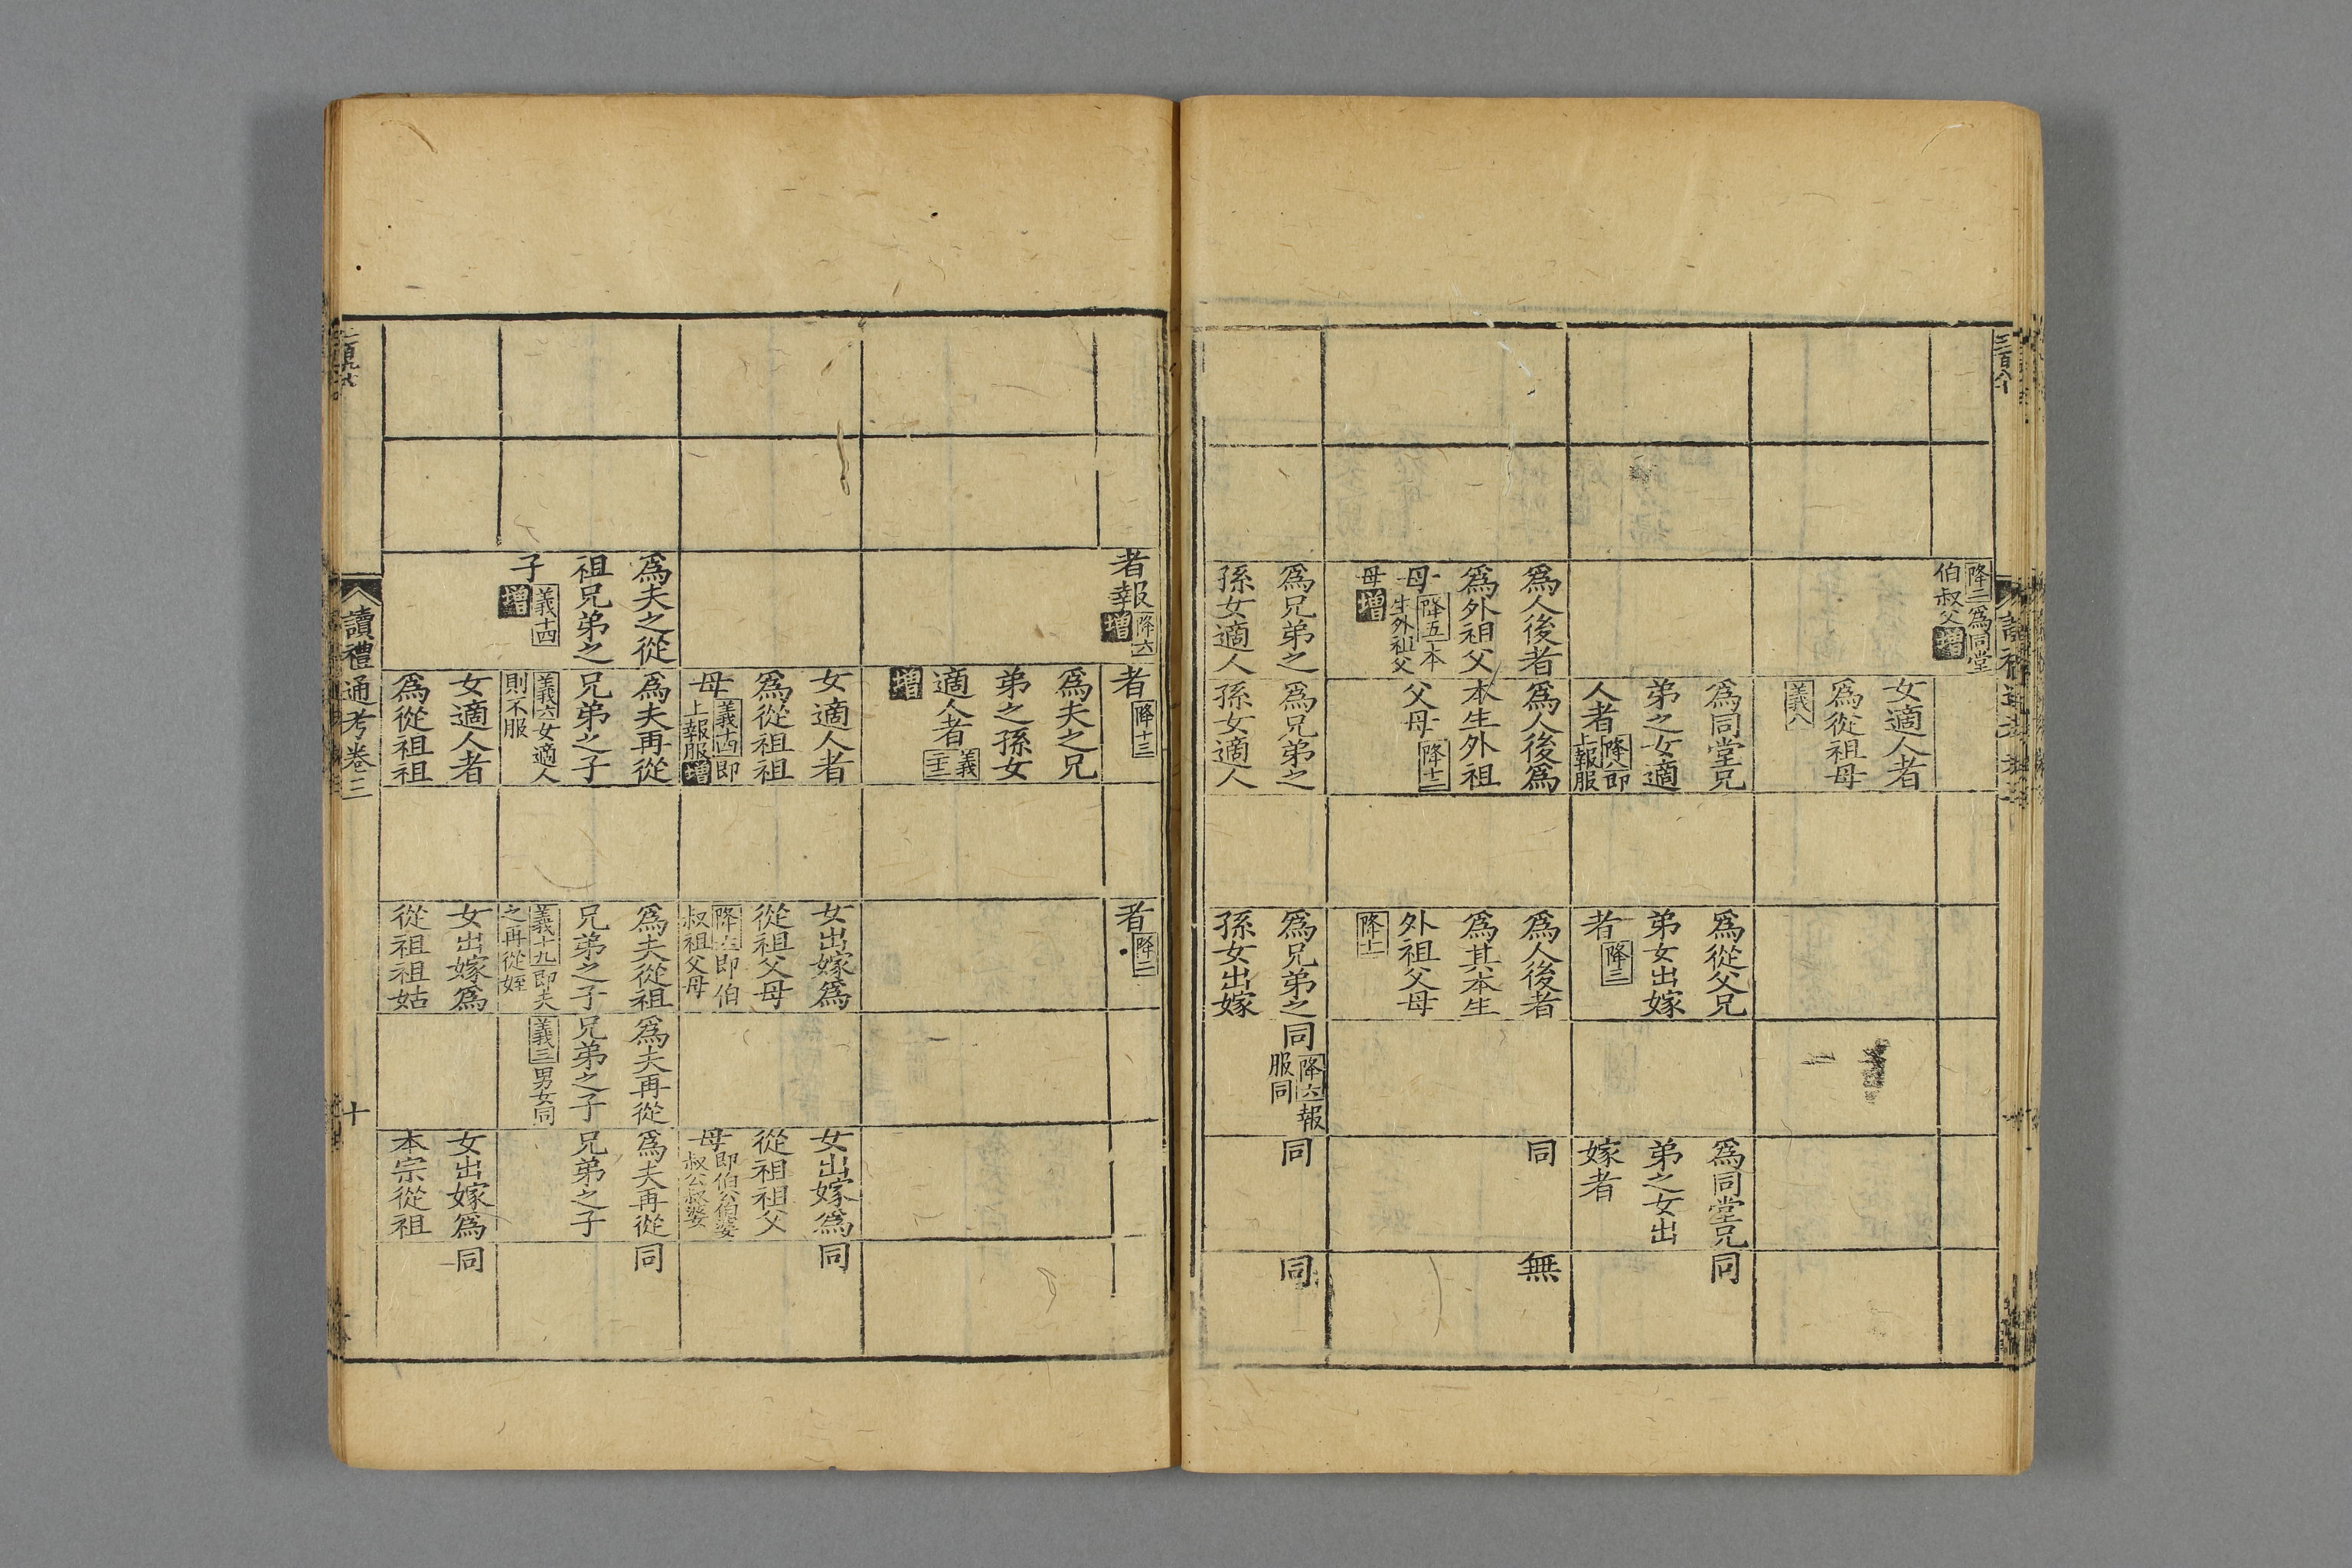 降二爲同堂
伯叔父增
女適人者
爲從祖母
義八
爲同堂兄
弟之女適
人者降八即
上報服
爲從父兄
弟女出嫁
者降三
爲同堂兄
弟之女出
嫁者
同
爲人後者
爲外祖父
母降五本
生外祖父
母增
爲人後爲
本生外祖
父母降十二
爲人後者
爲其本生
外祖父母
降十一
同
無
爲兄弟之
孫女適人
爲兄弟之
孫女適人
爲兄弟之
孫女出嫁
同降六報
服同
同
同
者報降六
增
者降十三
者降二
爲夫之兄
弟之孫女
適人者義
二十三
增
女適人者
爲從祖祖
母義十四即
上報服增
女出嫁爲
從祖父母
即伯
叔祖父母
女出嫁爲
從祖祖父
母即伯公伯婆
叔公叔婆
同
爲夫之從
祖兄弟之
子義十四
增
爲夫再從
兄弟之子
義六女適人
則不服
爲夫從祖
兄弟之子
義十九即夫
之再從姪
爲夫再從
兄弟之子
義三男女同
爲夫再從
兄弟之子
同
女適人者
爲從祖祖
女出嫁爲
從祖祖姑
女出嫁爲
本宗從祖
同
讀禮通考卷三
十